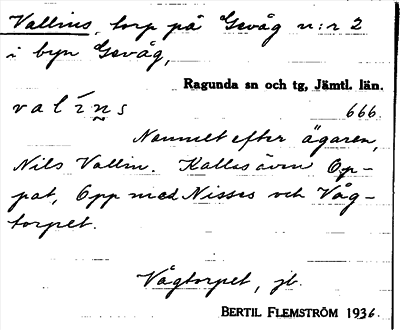 Vallins, torp på Gevåg n:r 2
i byn Gevåg,
Ragunda sn och tg, Jämtl. län.
valíns 666.
Namnet efter ägaren,
Nils Vallin. Kallas även Op-
pat, Opp med Nisses och Våg-
torpet.
Vågtorpet, jb.
BERTIL FLEMSTRÖM 1936.